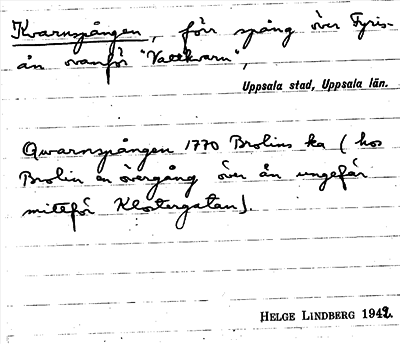 Kvarnspången, förr spång över Fyris-
ån ovanför "Vattkvarn",
Uppsala stad, Uppsala län.
Qwarnspången 1770 Brolins ka (hos
Brolin en övergång över ån ungefär
mittför Klostergatan).
HELGE LINDBERG 1942.